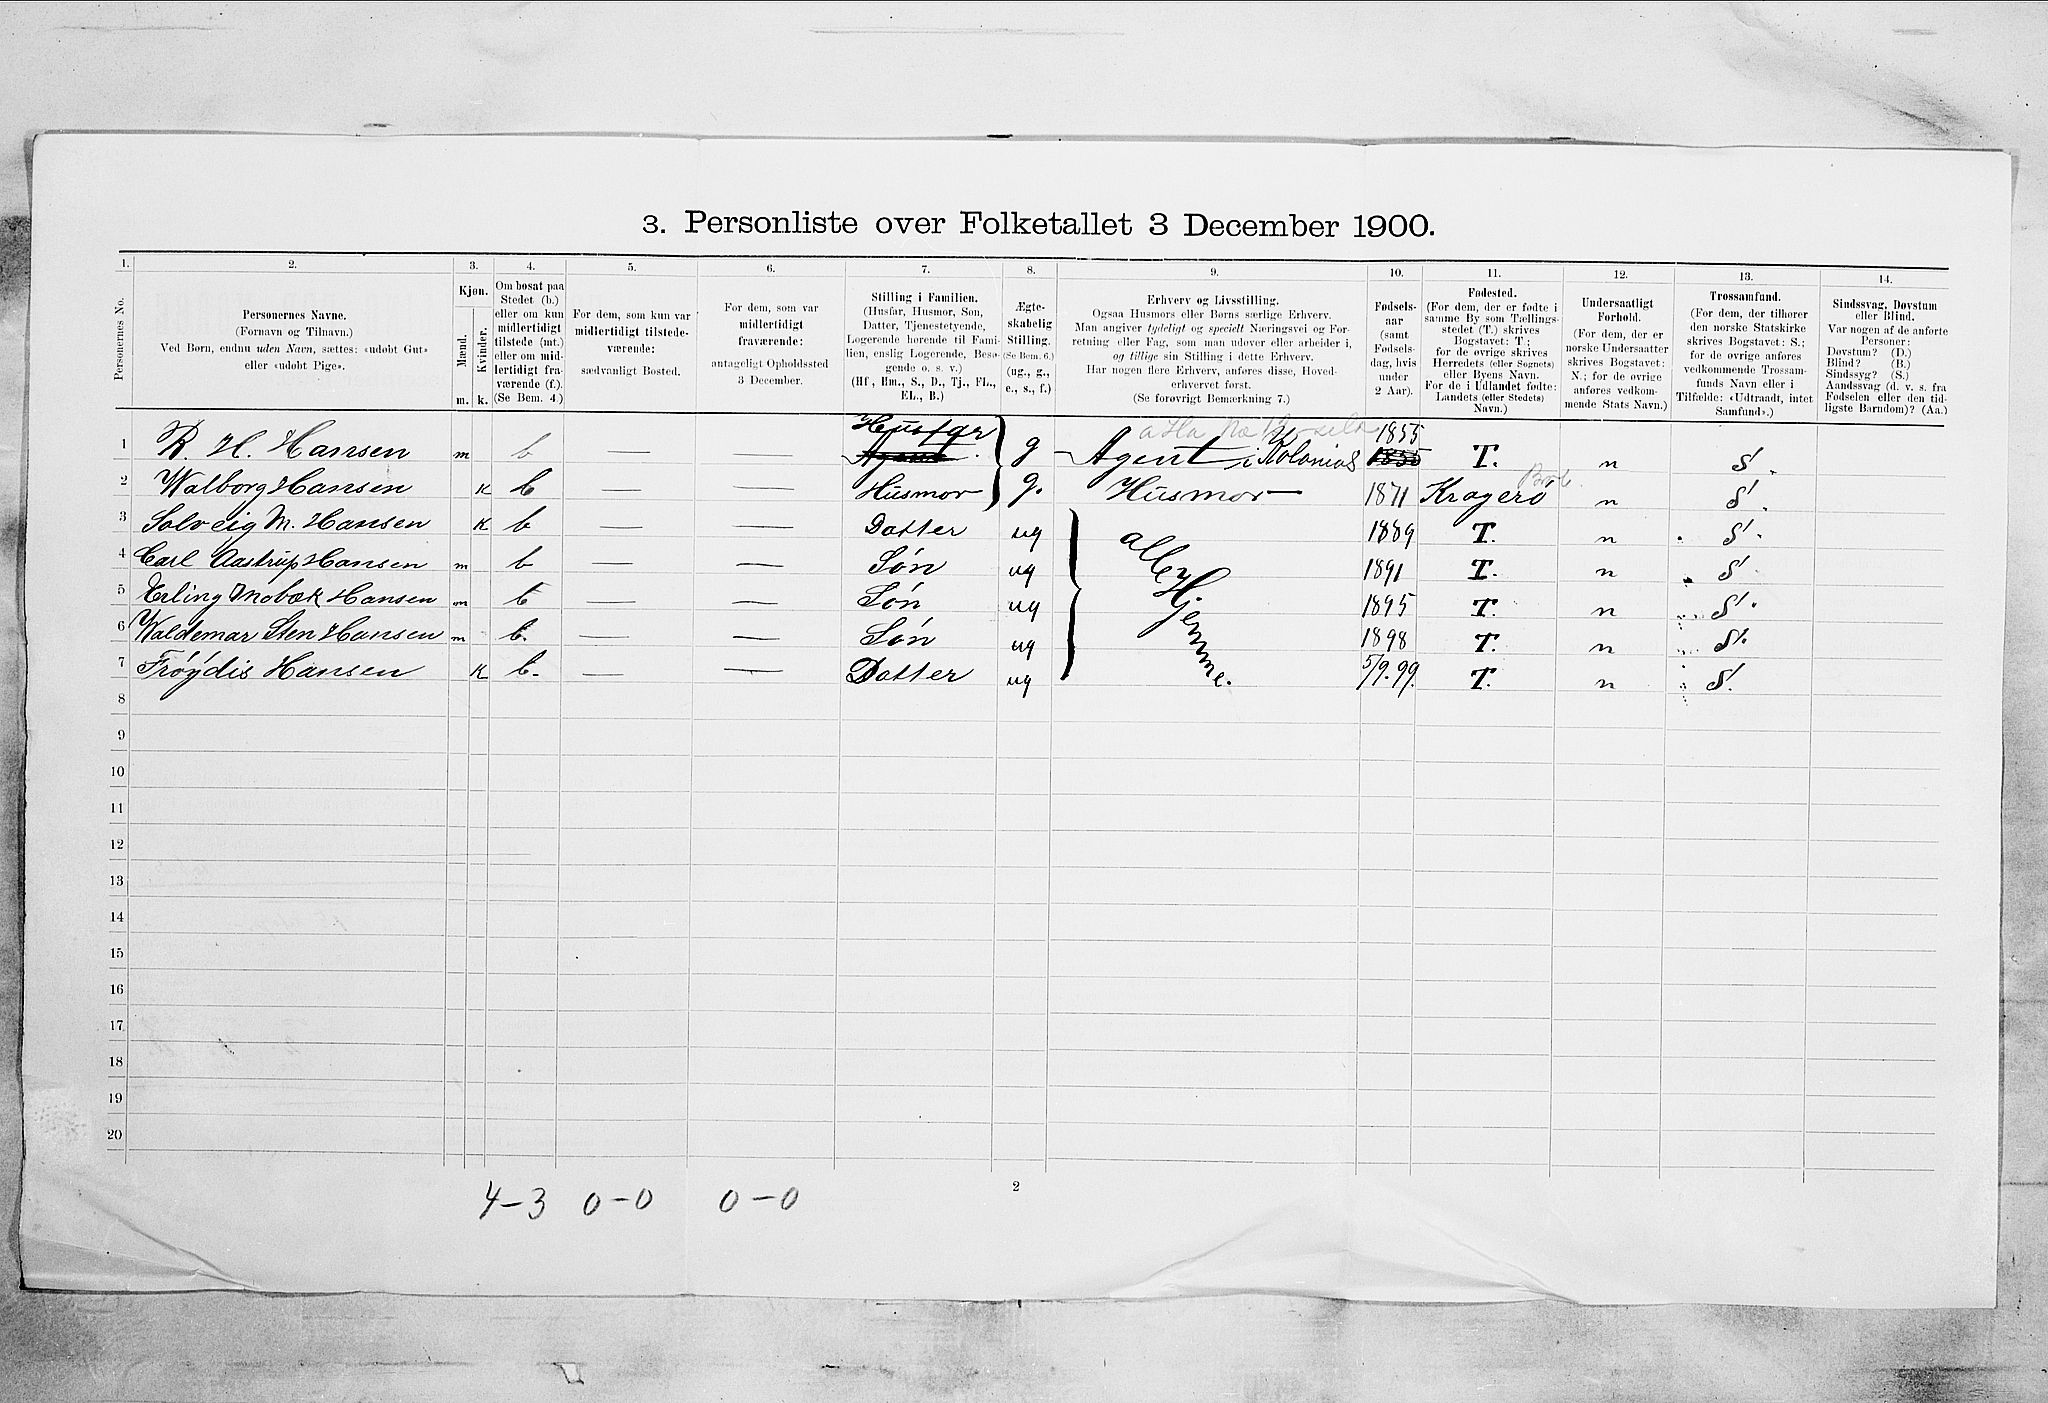 3. Personliste over Folketallet 3 December 1900.
1. 2. 3. 4. 5. 6. 7. 8. 9. 10. 11. 12. 13. 14.
Personernes No.
Personernes Navne.
(Fornavn og Tilnavn.)
Ved Børn, endnu uden Navn, sættes: «udøbt Gut»
eller «udøbt Pige».
Kjøn.
Mænd.
Kvinder.
m. k.
Om bosat paa
Stedet (b.)
eller om kun
midlertidigt
tilstede (mt.)
eller om mid-
lertidigt fra-
værende (f.).
(Se Bem. 4.)
For dem, som kun var
midlertidigt tilstede-
værende:
sædvanligt Bosted.
For dem, som var
midlertidigt
fraværende:
antageligt Opholdssted
3 December.
Stilling i Familien.
(Husfar, Husmor, Søn,
Datter, Tjenestetyende,
Logerende hørende til Fami-
lien, enslig Logerende, Besø-
gende o. s. v.)
(Hf., Hm., S., D., Tj., FL.,
EL., B.)
Ægte-
skabelig
Stilling.
(Se Bem. 6.)
(ug., g.,
e., s., f.)
Erhverv og Livsstilling.
Ogsaa Husmors eller Børns særlige Erhverv.
Man angiver tydeligt og specielt Næringsvei og For-
retning eller Fag, som man udøver eller arbeider i,
og tillige sin Stilling i dette Erhverv.
Har nogen flere Erhverv, anføres disse, Hoved-
erhvervet først.
(Se forøvrigt Bemerkning 7.)
Fødsels-
aar
(samt
Fødsels-
dag, hvis
under
2 Aar).
Fødested.
(For dem, der er fødte i
samme By som Tællings-
stedet (T.) skrives
Bogstavet: T;
for de øvrige skrives
Herredets (eller Sognets)
eller Byens Navn.
For de i Udlandet fødte:
Landets (eller Stedets)
Navn.)
Undersaatligt
Forhold.
(For dem, der er
norske Undersaatter
skrives Bogstavet:
N.; for de øvrige
anføres vedkom-
mende Stats Navn.)
Trossamfund.
(For dem, der tilhører
den norske Statskirke
skrives Bogstavet: S.;
for de øvrige anføres
vedkommende Trossam-
funds Navn eller i
Tilfælde: «Udtraadt, intet
Samfund».)
Sindssvag, Døvstum
eller Blind.
Var nogen af de anførte
Personer:
Døvstum? (D.)
Blind? (B.)
Sindssyg? (S.)
Aandssvag (d. v. s. fra
Fødselen eller den tid-
ligste Barndom)? (Aa.)
1 R. H. Hansen m b — — Husfar g Agent i Kolonial 1855 T. n S.
2 Walborg Hansen K b — — Husmor g. Husmor 1871 Kragerø n S.
3 Solveig M. Hansen K b — — Datter ug 1889 T. n S.
4 Carl Aastrup Hansen m b — — Søn ug alle Hjemme. 1891 T. n S
5 Erling Mobæk Hansen m b — — Søn ug 1895 T. n S.
6 Waldemar Sten Hansen m b. — — Søn ug 1898 T. n S.
7 Frøydis Hansen K b. — — Datter ug 5/9.99. T. n S.
8
9
10
11
12
13
14
15
16
17
18
19
20
4-3 0-0 0-0
2